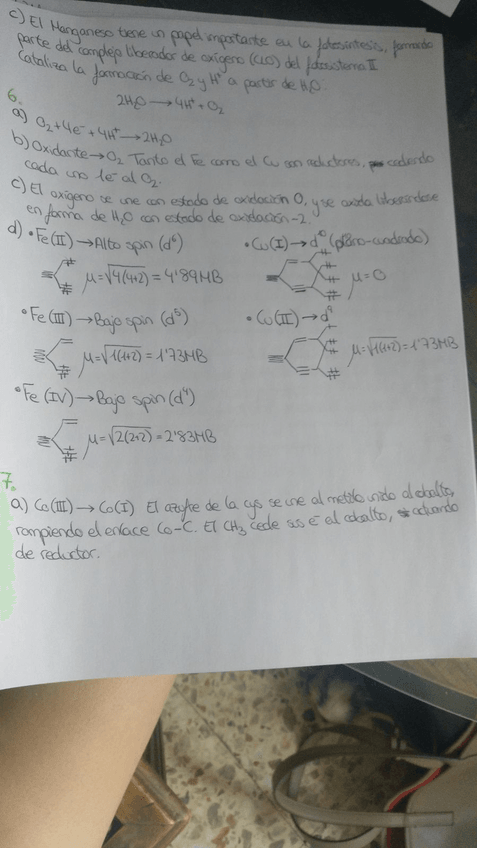 c) El Manganeso tiene un papel importante en la fotosíntesis, formando
parte del complejo liberador de oxígeno (CLO) del fotosistema II
Cataliza la formación de O₂ y H⁺ a partir de H₂O.
2H₂O → 4H⁺ + O₂
6.
a) O₂ + 4e⁻ + 4H⁺ → 2H₂O
b) Oxidante → O₂ Tanto el Fe como el Cu son reductores, cediendo
cada uno 1e⁻ al O₂.
c) El oxígeno se une con estado de oxidación 0, y se oxida liberándose
en forma de H₂O con estado de oxidación -2.
d) • Fe(II) → Alto spin (d⁶)
μ = √4(4+2) = 4'89MB
• Cu(I) → d¹⁰ (plano-cuadrado)
μ = 0
• Fe(III) → Bajo spin (d⁵)
μ = √1(1+2) = 1'73MB
• Cu(II) → d⁹
μ = √1(1+2) = 1'73MB
• Fe(IV) → Bajo spin (d⁴)
μ = √2(2+2) = 2'83MB
7.
a) Co(III) → Co(I) El azufre de la cys se une al metilo unido al cobalto,
rompiendo el enlace Co-C. El CH₃ cede sus e⁻ al cobalto, actuando
de reductor.